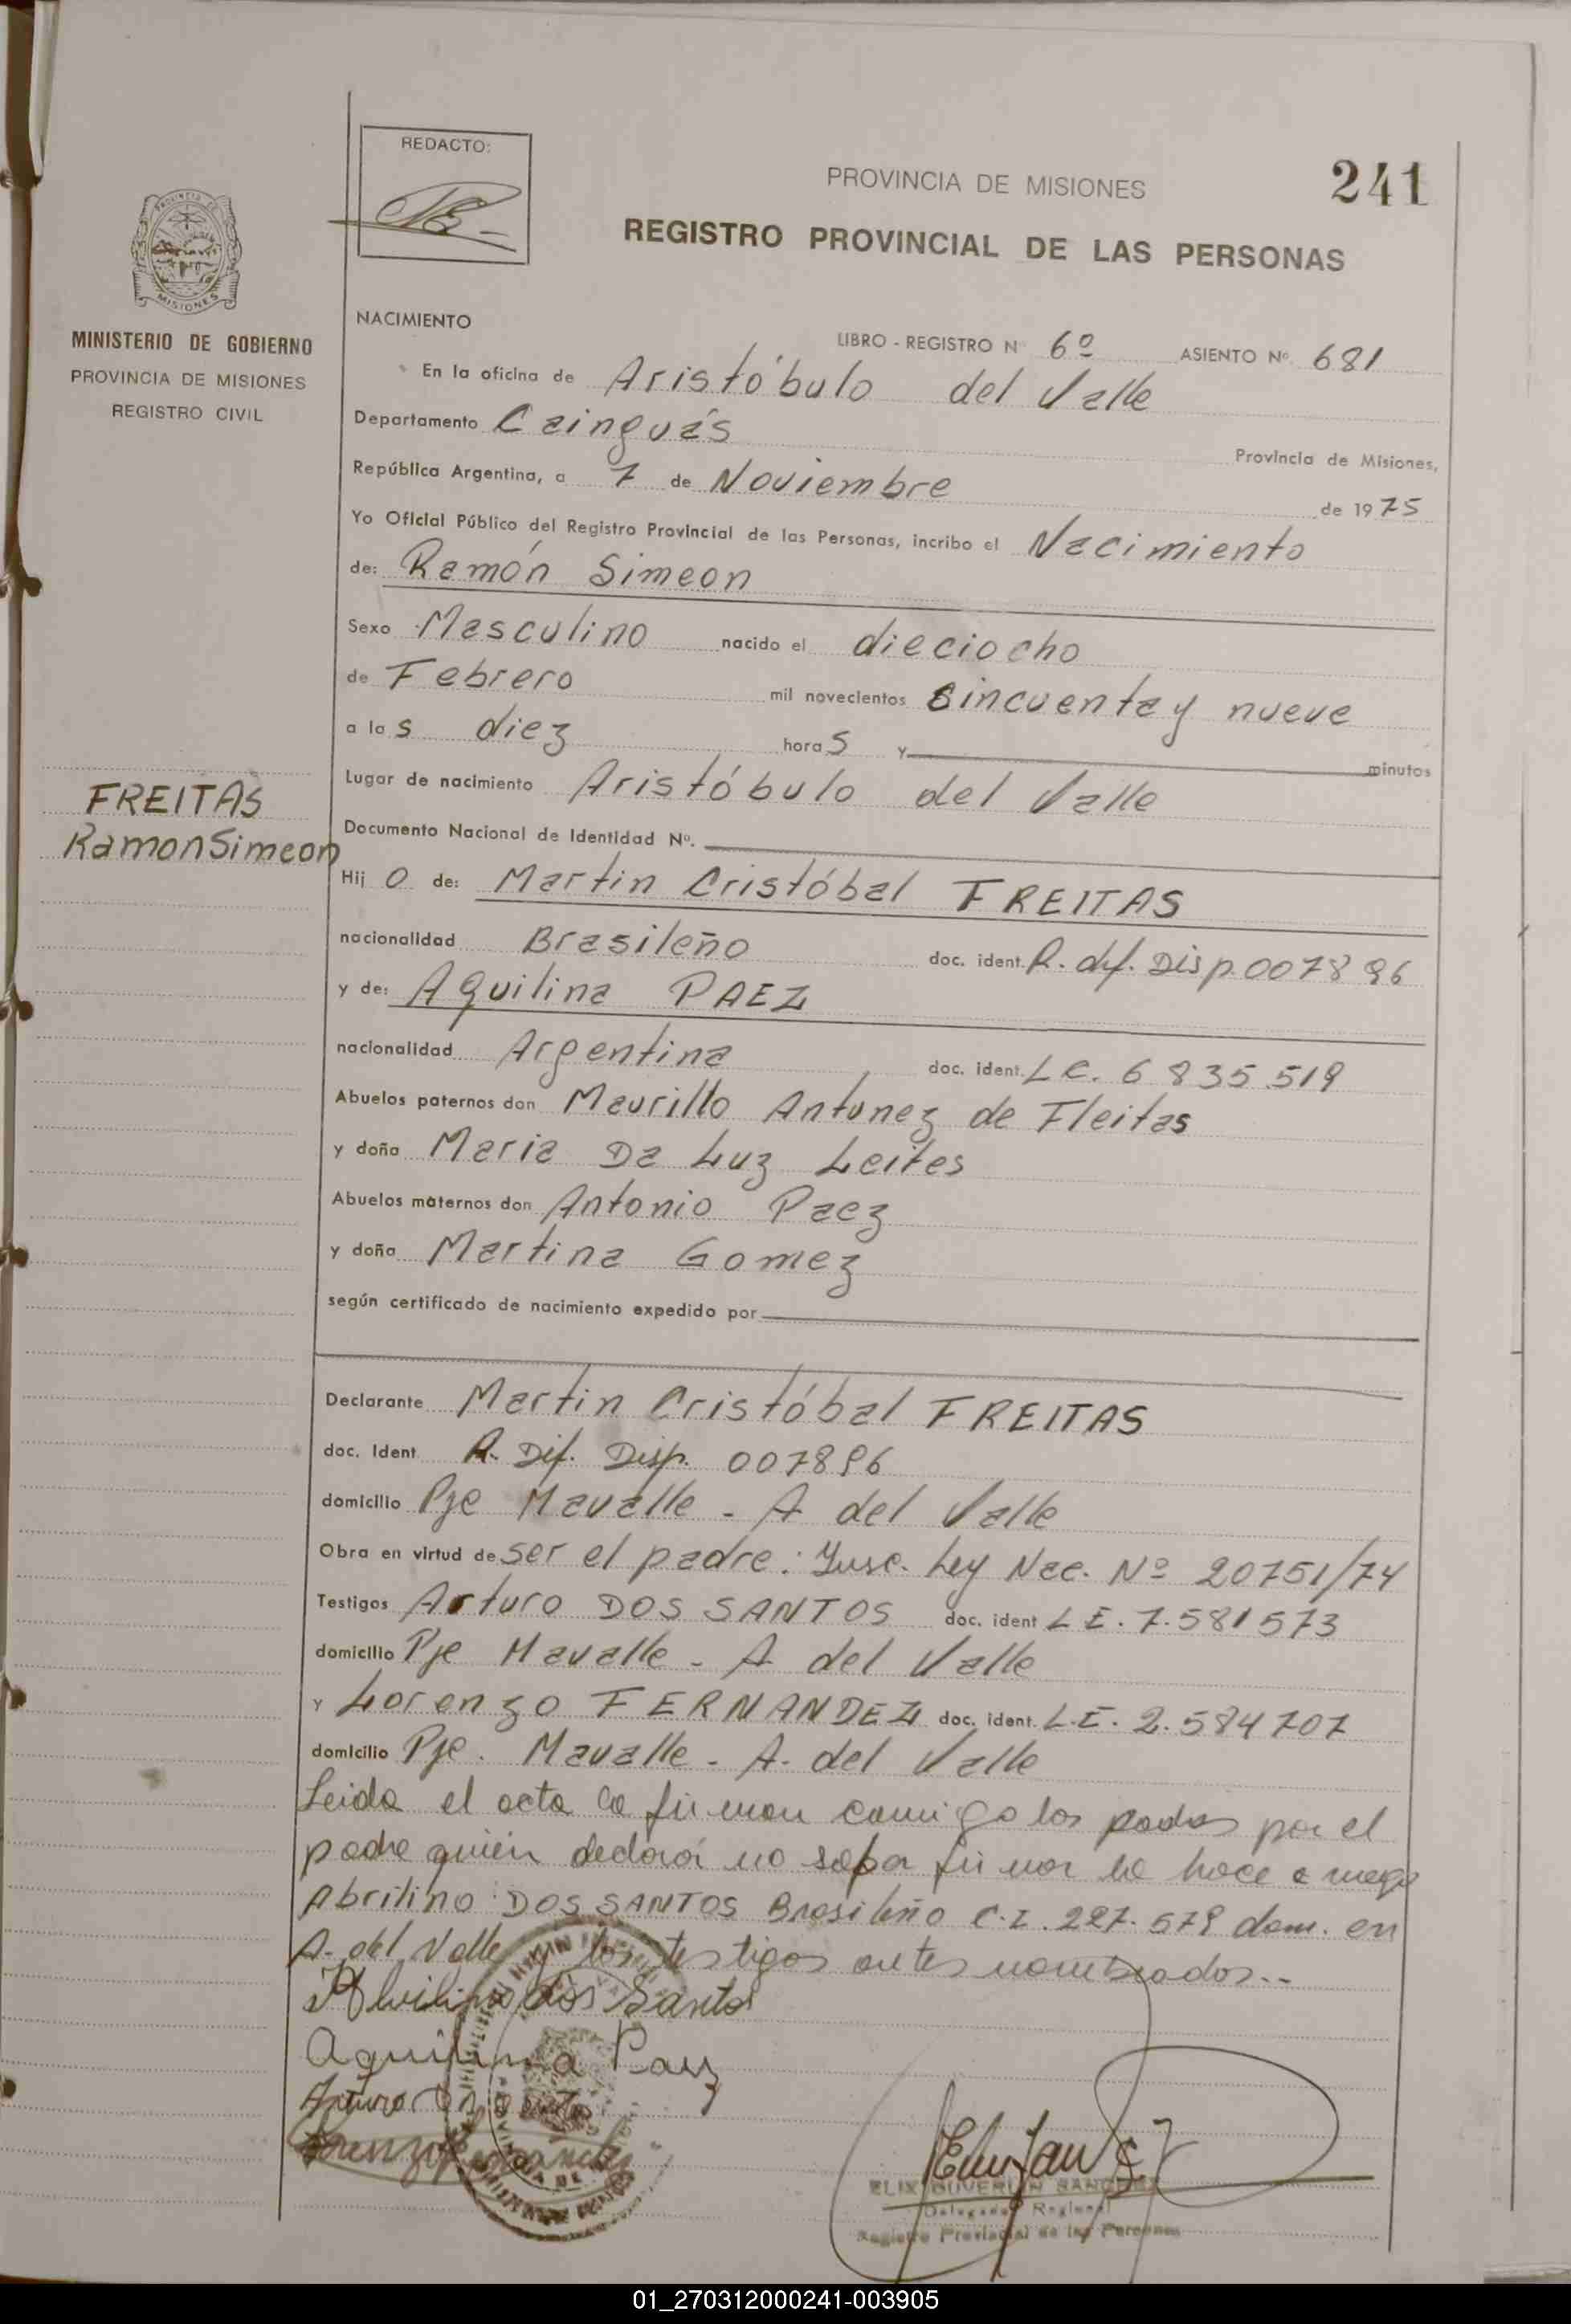 REDACTO:
PROVINCIA DE MISIONES
241
REGISTRO PROVINCIAL DE LAS PERSONAS
PROVINCIA DE
MISIONES
MINISTERIO DE GOBIERNO
PROVINCIA DE MISIONES
REGISTRO CIVIL
NACIMIENTO
LIBRO - REGISTRO Nº 6º ASIENTO Nº. 681
En la oficina de Aristóbulo del Valle
Departamento Cainguás Provincia de Misiones,
República Argentina, a 7 de Noviembre de 1975
Yo Oficial Público del Registro Provincial de las Personas, incribo el Nacimiento
de: Ramón Simeon
Sexo Masculino nacido el dieciocho
de Febrero mil novecientos cincuenta y nueve
a las diez horas y minutos
Lugar de nacimiento Aristóbulo del Valle
FREITAS
Ramon Simeon
Documento Nacional de Identidad Nº.
Hijo de: Martin Cristóbal FREITAS
nacionalidad Brasileño doc. ident. R. dif. Disp. 007896
y de: Aquilina PAEZ
nacionalidad Argentina doc. ident. L C. 6 835 519
Abuelos paternos don Maurillo Antunez de Fleitas
y doña Maria Da Luz Leites
Abuelos maternos don Antonio Paez
y doña Martina Gomez
según certificado de nacimiento expedido por
Declarante Martin Cristóbal FREITAS
doc. Ident R. Dif. Disp. 007896
domicilio Pje Mavalle - A del Valle
Obra en virtud de ser el padre: Insc. Ley Nac. Nº 20751/74
Testigos Arturo DOS SANTOS doc. ident L E. 7.581573
domicilio Pje Mavalle - A del Valle
y Lorenzo FERNANDEZ doc. ident. L.E. 2.584707
domicilio Pje. Mavalle - A. del Valle
Leida el acta la firman conmigo los padres por el
padre quién declará no saber firmar lo hace a ruego
Abrilino DOS SANTOS Brasileño C.I. 227.579 dom. en
A. del Valle y los testigos antes nombrados..
Alvilino dos Santos
Aquilina Paez
Arturo
Lorenzo Fernandez
Delegado Regional
Registro Provincial de las Personas
01_270312000241-003905